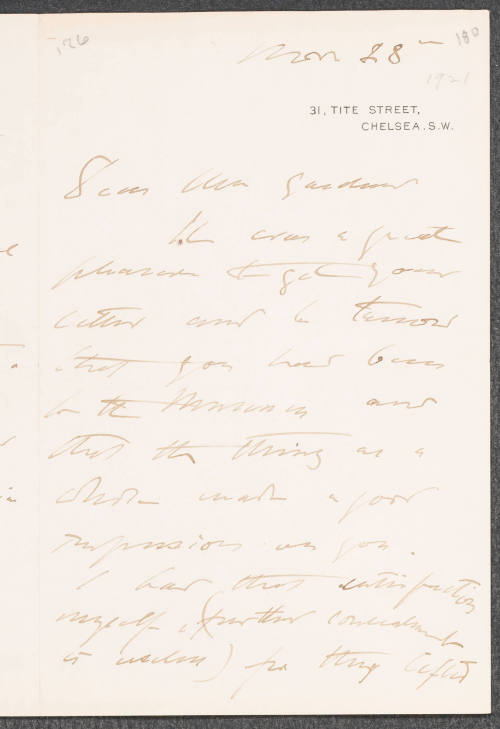 126
180
Nov 28th
1921
31, TITE STREET,
CHELSEA. S.W.
Dear Mrs Gardner
It was a great
pleasure to get your
letter and to know
that you had been
to the Museum and
that the thing as a
whole made a good
impression on you.
I had that satisfaction
myself, (further concealment
is useless) for they lifted